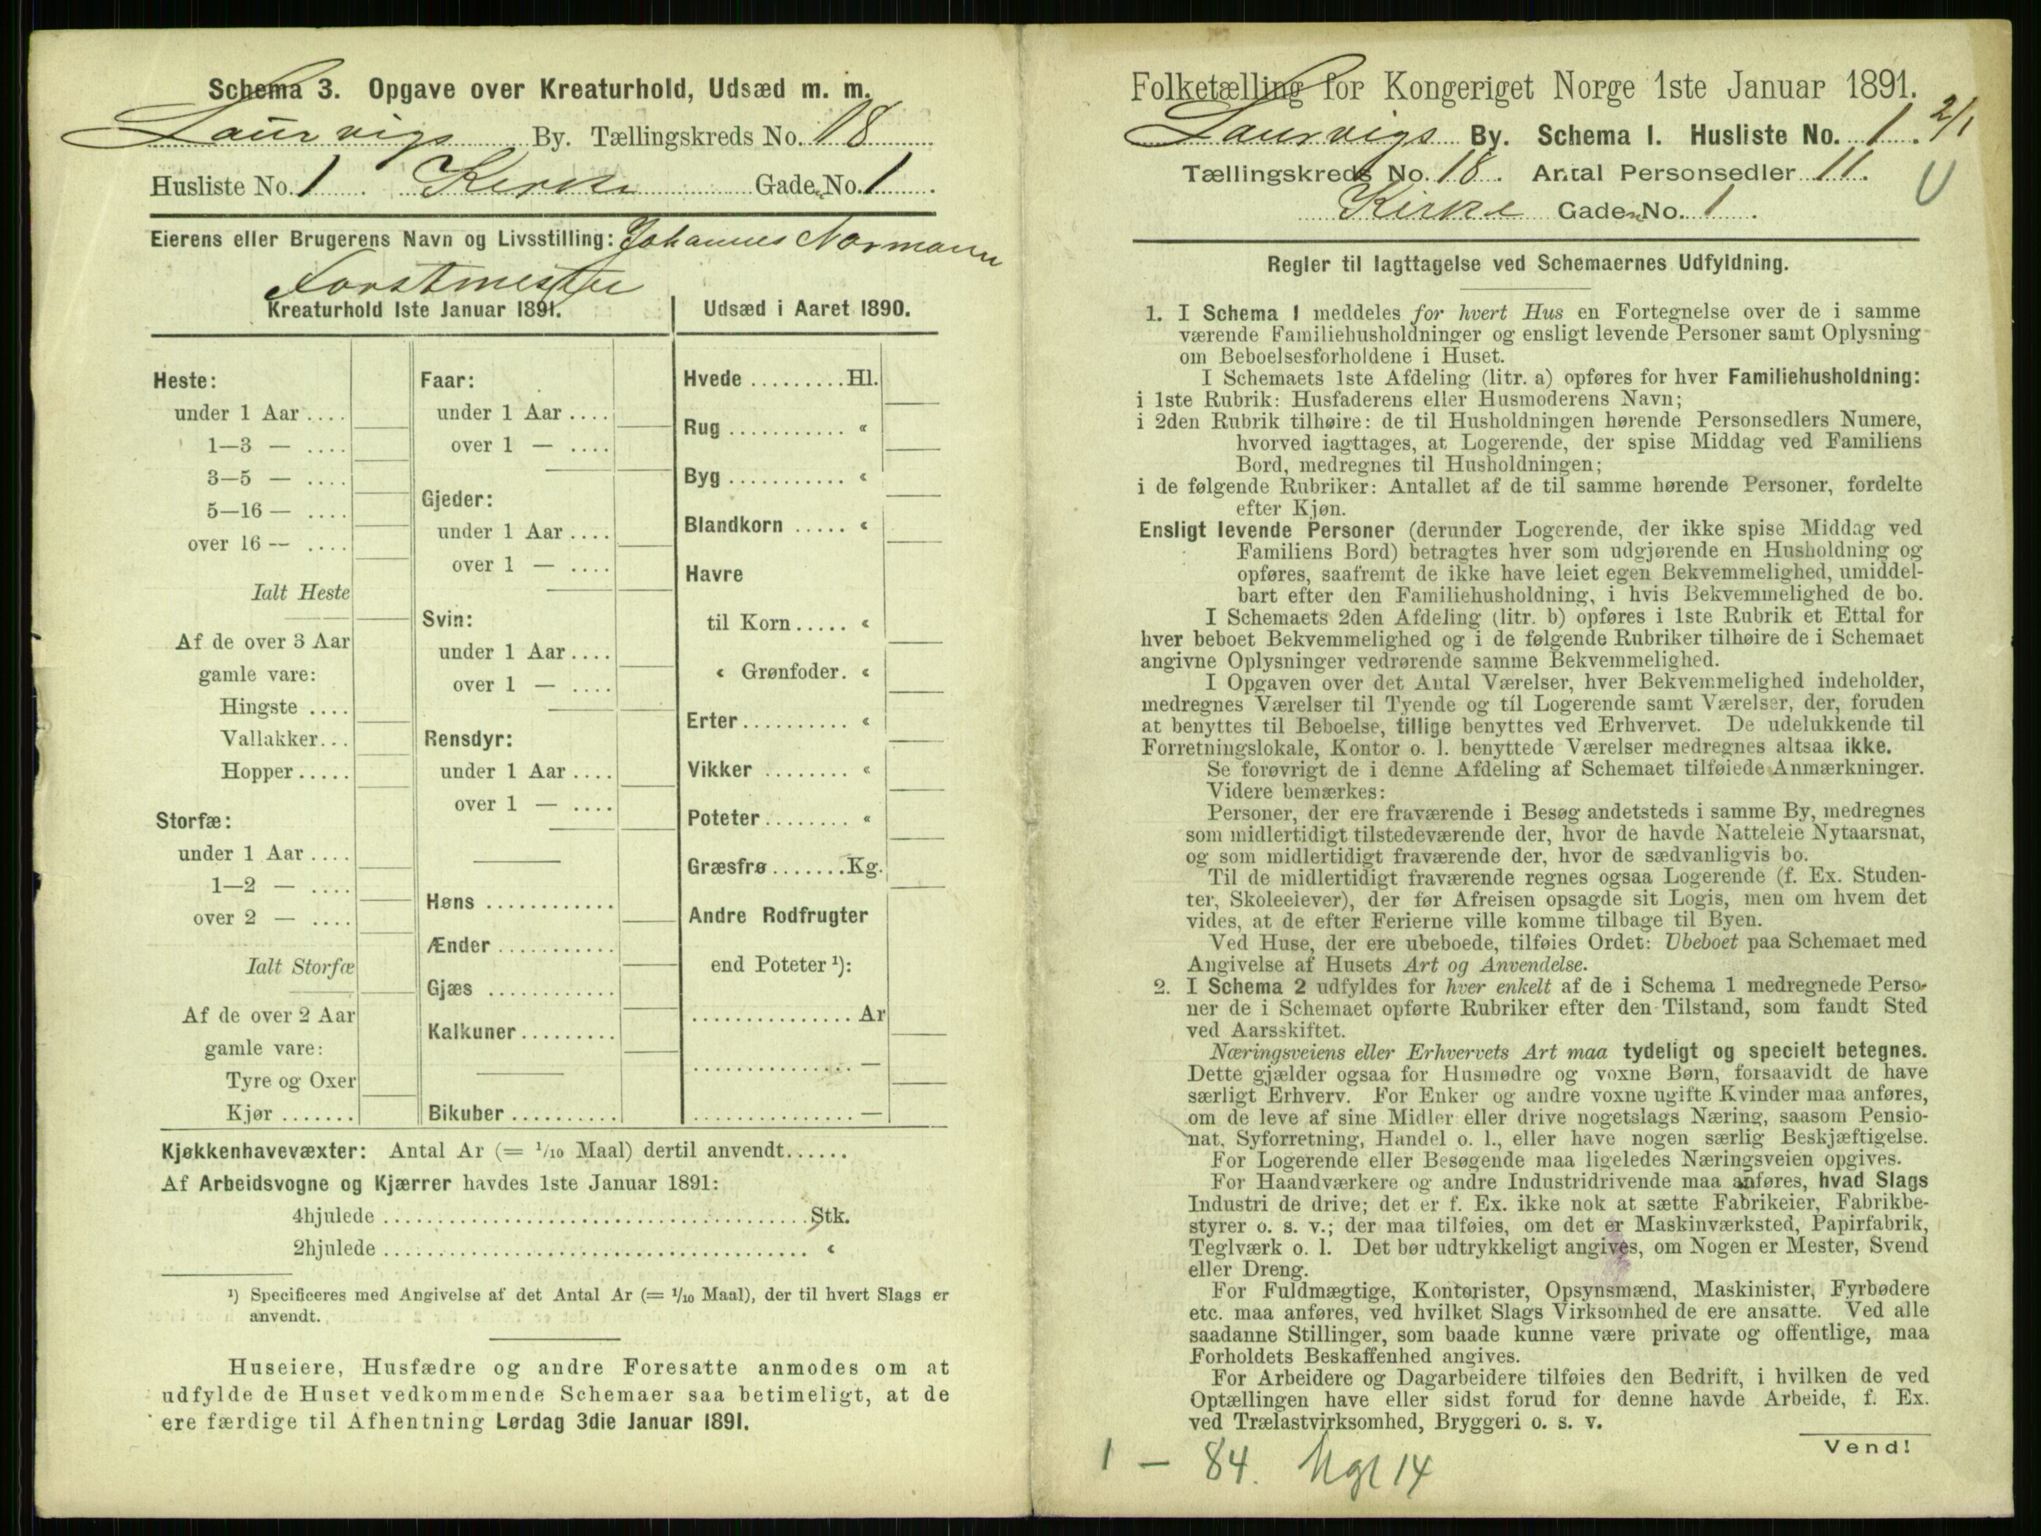 Schema 3. Opgave over Kreaturhold, Udsæd m. m.
Laurvigs By. Tællingskreds No. 18
Husliste No. 1 Kirke Gaden No. 1
Eierens eller Brugerens Navn og Livsstilling: Johannes Normann
Forstmester
Kreaturhold 1ste Januar 1891.
Heste:
under 1 Aar ....
1—3 — ....
3—5 — ....
5—16 — ....
over 16 — ....
Ialt Heste
Af de over 3 Aar
gamle vare:
Hingste ....
Vallakker...
Hopper.....
Storfæ:
under 1 Aar ....
1—2 — ....
over 2 — ....
Ialt Storfæ
Af de over 2 Aar
gamle vare:
Tyre og Oxer
Kjør .......
Faar:
under 1 Aar ....
over 1 — ....
Gjeder:
under 1 Aar ....
over 1 — ....
Svin:
under 1 Aar ....
over 1 — ....
Rensdyr:
under 1 Aar ....
over 1 — ....
Høns ............
Ænder ...........
Gjæs ............
Kalkuner .........
Bikuber ..........
Udsæd i Aaret 1890.
Hvede .........Hl.
Rug ........... «
Byg ........... «
Blandkorn ..... «
Havre
til Korn..... «
« Grønfoder. «
Erter.......... «
Vikker ........ «
Poteter........ «
Græsfrø .......Kg.
Andre Rodfrugter
end Poteter ¹):
............... Ar
............... —
............... —
Kjøkkenhavevæxter: Antal Ar (= 1/10 Maal) dertil anvendt......
Af Arbeidsvogne og Kjærrer havdes 1ste Januar 1891:
4hjulede ....................................... Stk.
2hjulede ....................................... «
¹) Specificeres med Angivelse af det Antal Ar (= 1/10 Maal), der til hvert Slags er
anvendt.
Huseiere, Husfædre og andre Foresatte anmodes om at
udfylde de Huset vedkommende Schemaer saa betimeligt, at de
ere færdige til Afhentning Lørdag 3die Januar 1891.
Folketælling for Kongeriget Norge 1ste Januar 1891.
Laurvigs By. Schema I. Husliste No. 1. 2/1
Tællingskreds No. 18. Antal Personsedler 11. U
Kirke Gaden No. 1.
Regler til Iagttagelse ved Schemaernes Udfyldning.
1. I Schema 1 meddeles for hvert Hus en Fortegnelse over de i samme
værende Familiehusholdninger og ensligt levende Personer samt Oplysning
om Beboelsesforholdene i Huset.
I Schemaets 1ste Afdeling (litr. a) opføres for hver Familiehusholdning:
i 1ste Rubrik: Husfaderens eller Husmoderens Navn;
i 2den Rubrik tilhøire: de til Husholdningen hørende Personsedlers Numere,
hvorved iagttages, at Logerende, der spise Middag ved Familiens
Bord, medregnes til Husholdningen;
i de følgende Rubriker: Antallet af de til samme hørende Personer, fordelte
efter Kjøn.
Ensligt levende Personer (derunder Logerende, der ikke spise Middag ved
Familiens Bord) betragtes hver som udgjørende en Husholdning og
opføres, saafremt de ikke have leiet egen Bekvemmelighed, umiddel-
bart efter den Familiehusholdning, i hvis Bekvemmelighed de bo.
I Schemaets 2den Afdeling (litr. b) opføres i 1ste Rubrik et Ettal for
hver beboet Bekvemmelighed og i de følgende Rubriker tilhøire de i Schemaet
angivne Oplysninger vedrørende samme Bekvemmelighed.
I Opgaven over det Antal Værelser, hver Bekvemmelighed indeholder,
medregnes Værelser til Tyende og til Logerende samt Værelser, der, foruden
at benyttes til Beboelse, tillige benyttes ved Erhvervet. De udelukkende til
Forretningslokale, Kontor o. l. benyttede Værelser medregnes altsaa ikke.
Se forøvrigt de i denne Afdeling af Schemaet tilføiede Anmærkninger.
Videre bemærkes:
Personer, der ere fraværende i Besøg andetsteds i samme By, medregnes
som midlertidigt tilstedeværende der, hvor de havde Natteleie Nytaarsnat,
og som midlertidigt fraværende der, hvor de sædvanligvis bo.
Til de midlertidigt fraværende regnes ogsaa Logerende (f. Ex. Studen-
ter, Skoleelever), der før Afreisen opsagde sit Logis, men om hvem det
vides, at de efter Ferierne ville komme tilbage til Byen.
Ved Huse, der ere ubeboede, tilføies Ordet: Ubeboet paa Schemaet med
Angivelse af Husets Art og Anvendelse.
2. I Schema 2 udfyldes for hver enkelt af de i Schema 1 medregnede Perso-
ner de i Schemaet opførte Rubriker efter den Tilstand, som fandt Sted
ved Aarsskiftet.
Næringsveiens eller Erhvervets Art maa tydeligt og specielt betegnes.
Dette gjælder ogsaa for Husmødre og voxne Børn, forsaavidt de have
særligt Erhverv. For Enker og andre voxne ugifte Kvinder maa anføres,
om de leve af sine Midler eller drive nogetslags Næring, saasom Pensio-
nat, Syforretning, Handel o. l., eller have nogen særlig Beskjæftigelse.
For Logerende eller Besøgende maa ligeledes Næringsveien opgives.
For Haandværkere og andre Industridrivende maa anføres, hvad Slags
Industri de drive; det er f. Ex. ikke nok at sætte Fabrikeier, Fabrikbe-
styrer o. s. v.; der maa tilføies, om det er Maskinværksted, Papirfabrik,
Teglværk o. l. Det bør udtrykkeligt angives, om Nogen er Mester, Svend
eller Dreng.
For Fuldmægtige, Kontorister, Opsynsmænd, Maskinister, Fyrbødere
etc. maa anføres, ved hvilket Slags Virksomhed de ere ansatte. Ved alle
saadanne Stillinger, som baade kunne være private og offentlige, maa
Forholdets Beskaffenhed angives.
For Arbeidere og Dagarbeidere tilføies den Bedrift, i hvilken de ved
Optællingen have eller sidst forud for denne havde Arbeide, f. Ex.
ved Trælastvirksomhed, Bryggeri o. s. v.
Vend!
1 — 84. Mgl 14